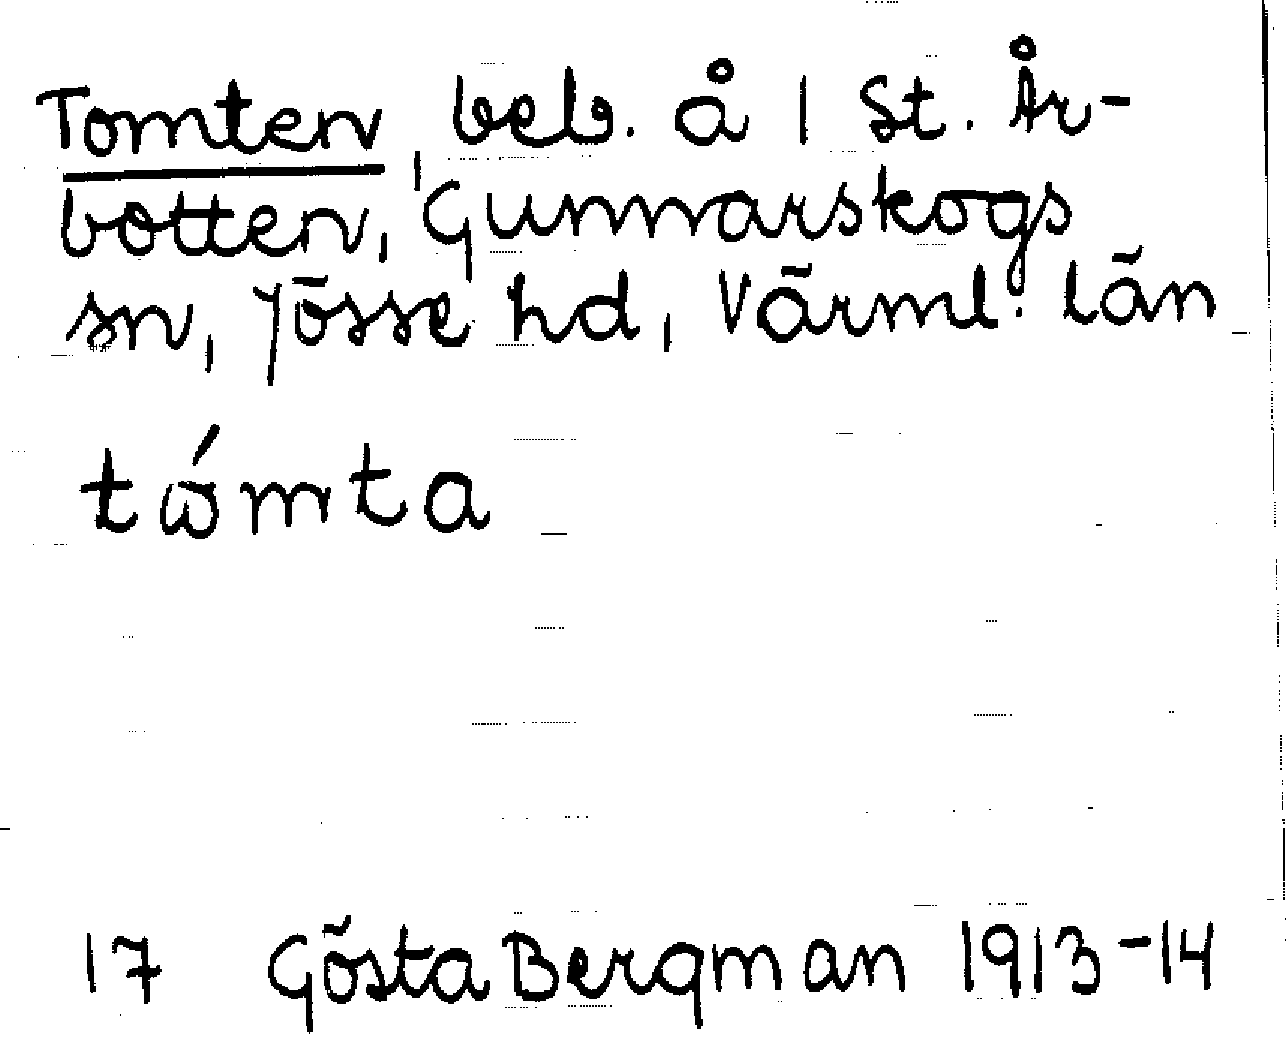 Tomten, beb. å 1 St. År-
botten, Gunnarskogs
sn, Jösse hd, Värml. län
tώmta
17 Gösta Bergman 1913-14